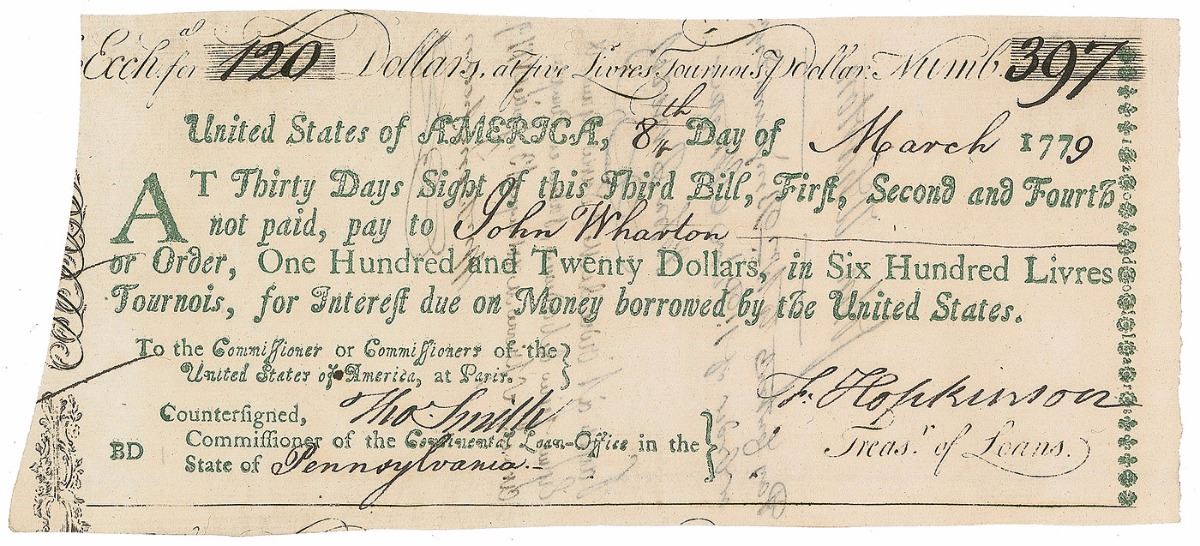 Exch.ᵃ for 120 Dollars, at five Livres Tournois ℘ Dollar. Numb. 397
United States of AMERICA, 8th Day of March 1779
AT Thirty Days Sight of this Third Bill, First, Second and Fourth
not paid, pay to John Wharton
or Order, One Hundred and Twenty Dollars, in Six Hundred Livres
Tournois, for Intereſt due on Money borrowed by the United States.
To the Commiſſioner or Commiſſioners of the
United States of America, at Paris.
F. Hopkinson
Treas.ʳ of Loans.
Countersigned, Tho.ˢ Smith
Commiſſioner of the Continental Loan-Office in the
BD State of Pennsylvania.